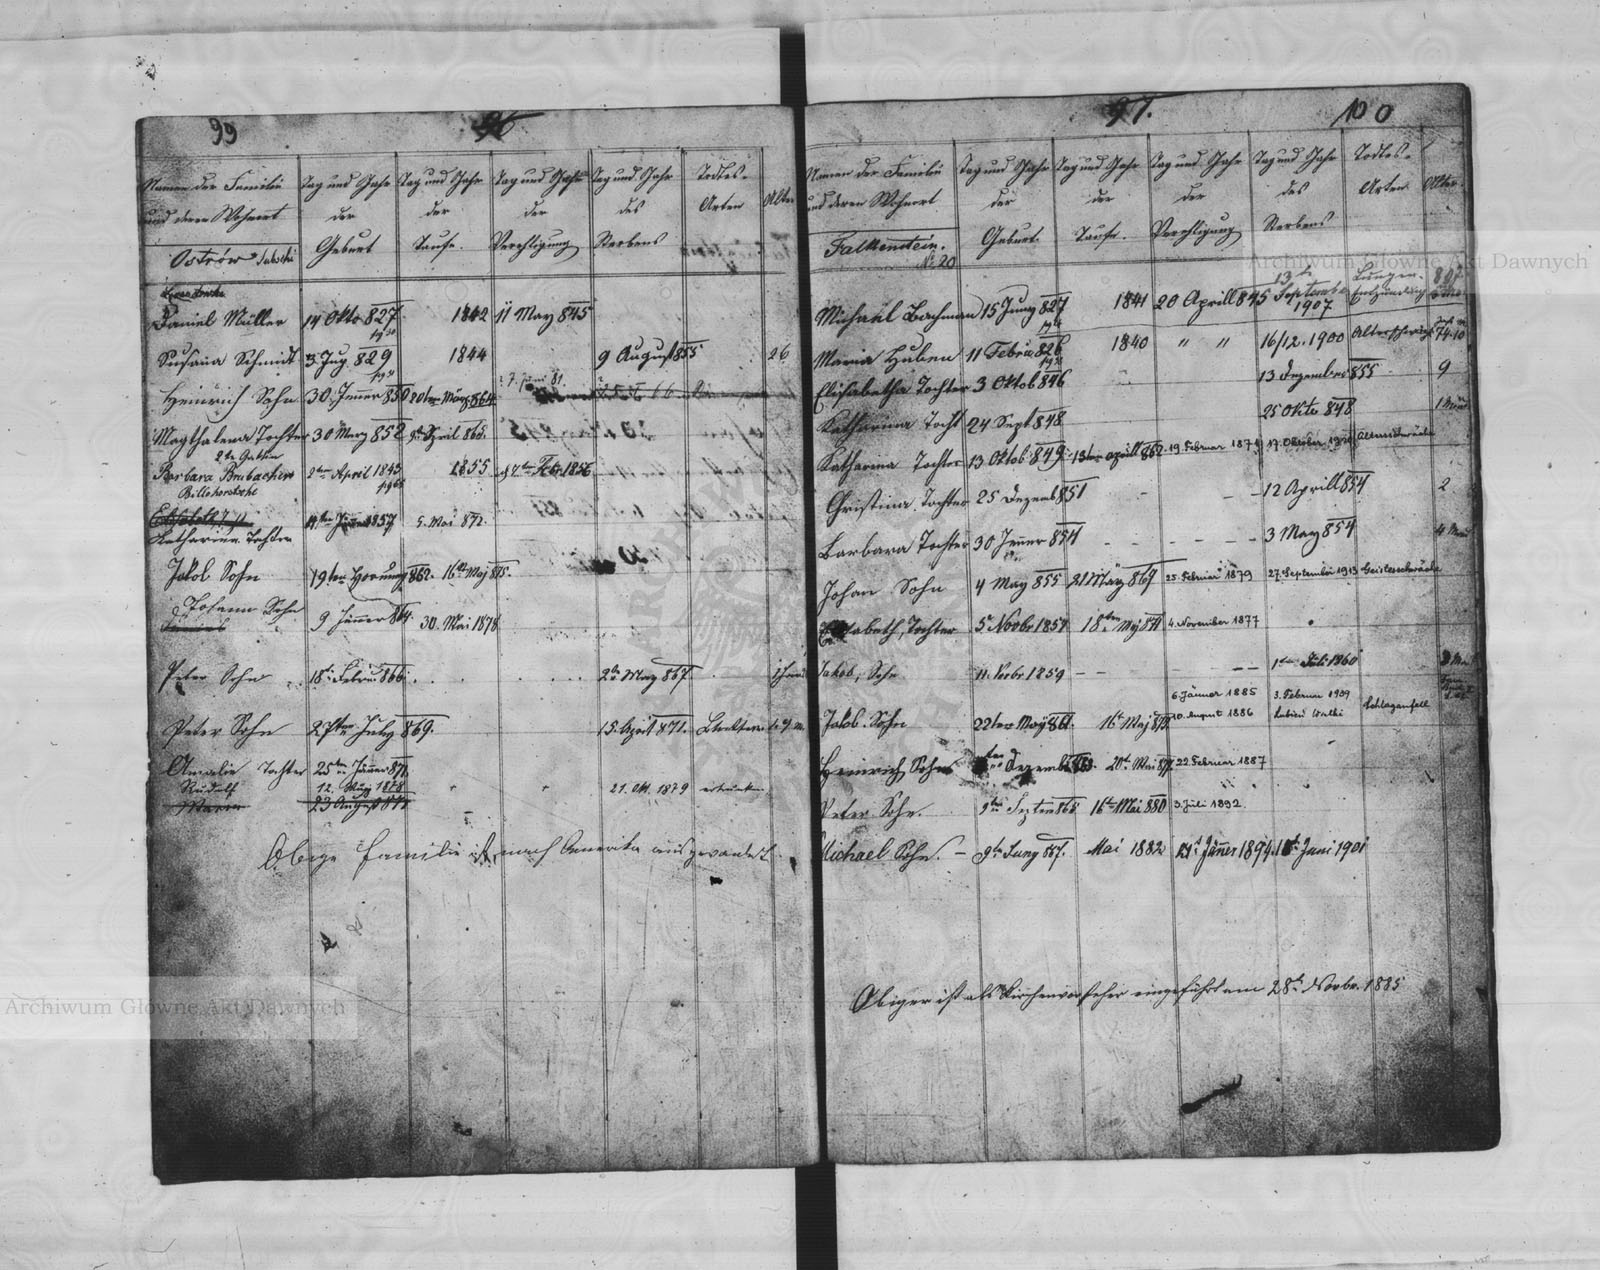 99
96
Namen der Familie
und deren Wohnort
Tag und Jahr
der
Geburt
Tag und Jahr
der
Taufe.
Tag und Jahr
der
Verehligung
Tag und Jahr
des
Sterbens
Todtes-
Arten
Alter
Ostrów
Daniel Müller 14 Okto 827 1842 11 May 845
Susana Schmidt 3 Jug 829 1844 9 August 855 26
Heinrich Sohn 30 Jener 850 20ten März 864
Magthalena Tochter 30 Merz 852 April 866.
2te Gattin
Barbara Brubacher 2ten April 1843 1855 Feb. 1856
Katharina Tochter 11ten Jäner 1857 5. Mai 872.
Jakob Sohn 19ten Hornung 862. 16ten Maj 875.
Johann Sohn 9 Jänner 864 30. Mai 1878
Peter Sohn 18te Febru 866 2te May 867
Peter Sohn 27ten July 869. 15. April 871.
Amalie Tochter 25ten Jänner 871.
Rudolf 12. Aug 1878 21. Okt. 1879 ertrunken
Maria 23 August
Obige Familie ist nach Amerika ausgewandert.
97.
100
Namen der Familie
und deren Wohnort
Tag und Jahr
der
Geburt
Tag und Jahr
der
Taufe.
Tag und Jahr
der
Verehligung
Tag und Jahr
des
Sterbens
Todtes-
Arten
Alter
Falkenstein.
No 20
Michael Bachman 15 Juny 827 1841 20 Aprill 845 13te September 1907 Lungen-Entzündung
Maria Huben 11 Febru 826 1840 " " 16/12. 1900 Altersschwäche 74.10
Elisabetha Tochter 3 Oktob 846 13 Dezember 855 9
Katharina Tocht 24 Sept 848 25 Okto 848
Katharina Tochter 13 Oktob 849 13ten aprill 862. 19. Februar 1871 17. Oktober Altersschwäche
Christina Tochter 25 Dezemb 851 - - - 12 Aprill 854 2
Barbara Tochter 30 Jener 854 - - - - - 3 May 854
Johan Sohn 4 May 855 21 März 869 25. Februar 1879 27. September 1913 Geistesschwäche
Elisabeth, Tochter 5t Novbr 1857 18ten Mj 871 4. November 1877
Jakob, Sohn 11. Novbr. 1859 - - - - 1ten Juli 1860
6 Jänner 1885 3. Februar 1909
Jakob. Sohn 22ten May 861. 16t Maj 875. 10. August 1886 Schlaganfall
Heinrich Sohn Dezemb 863. 20t Mai 22. Februar 1887
Peter Sohn. 9ten Septem 865 16ten Mai 880 3. Juli 1892
Michael Sohn. - 9te Juny 867. Mai 1882 Jänner 1894. Juni 1901
Obiger ist als Kirchenvorsteher eingeführt am 28t Novbr. 1885
Archiwum Główne Akt Dawnych
Archiwum Główne Akt Dawnych